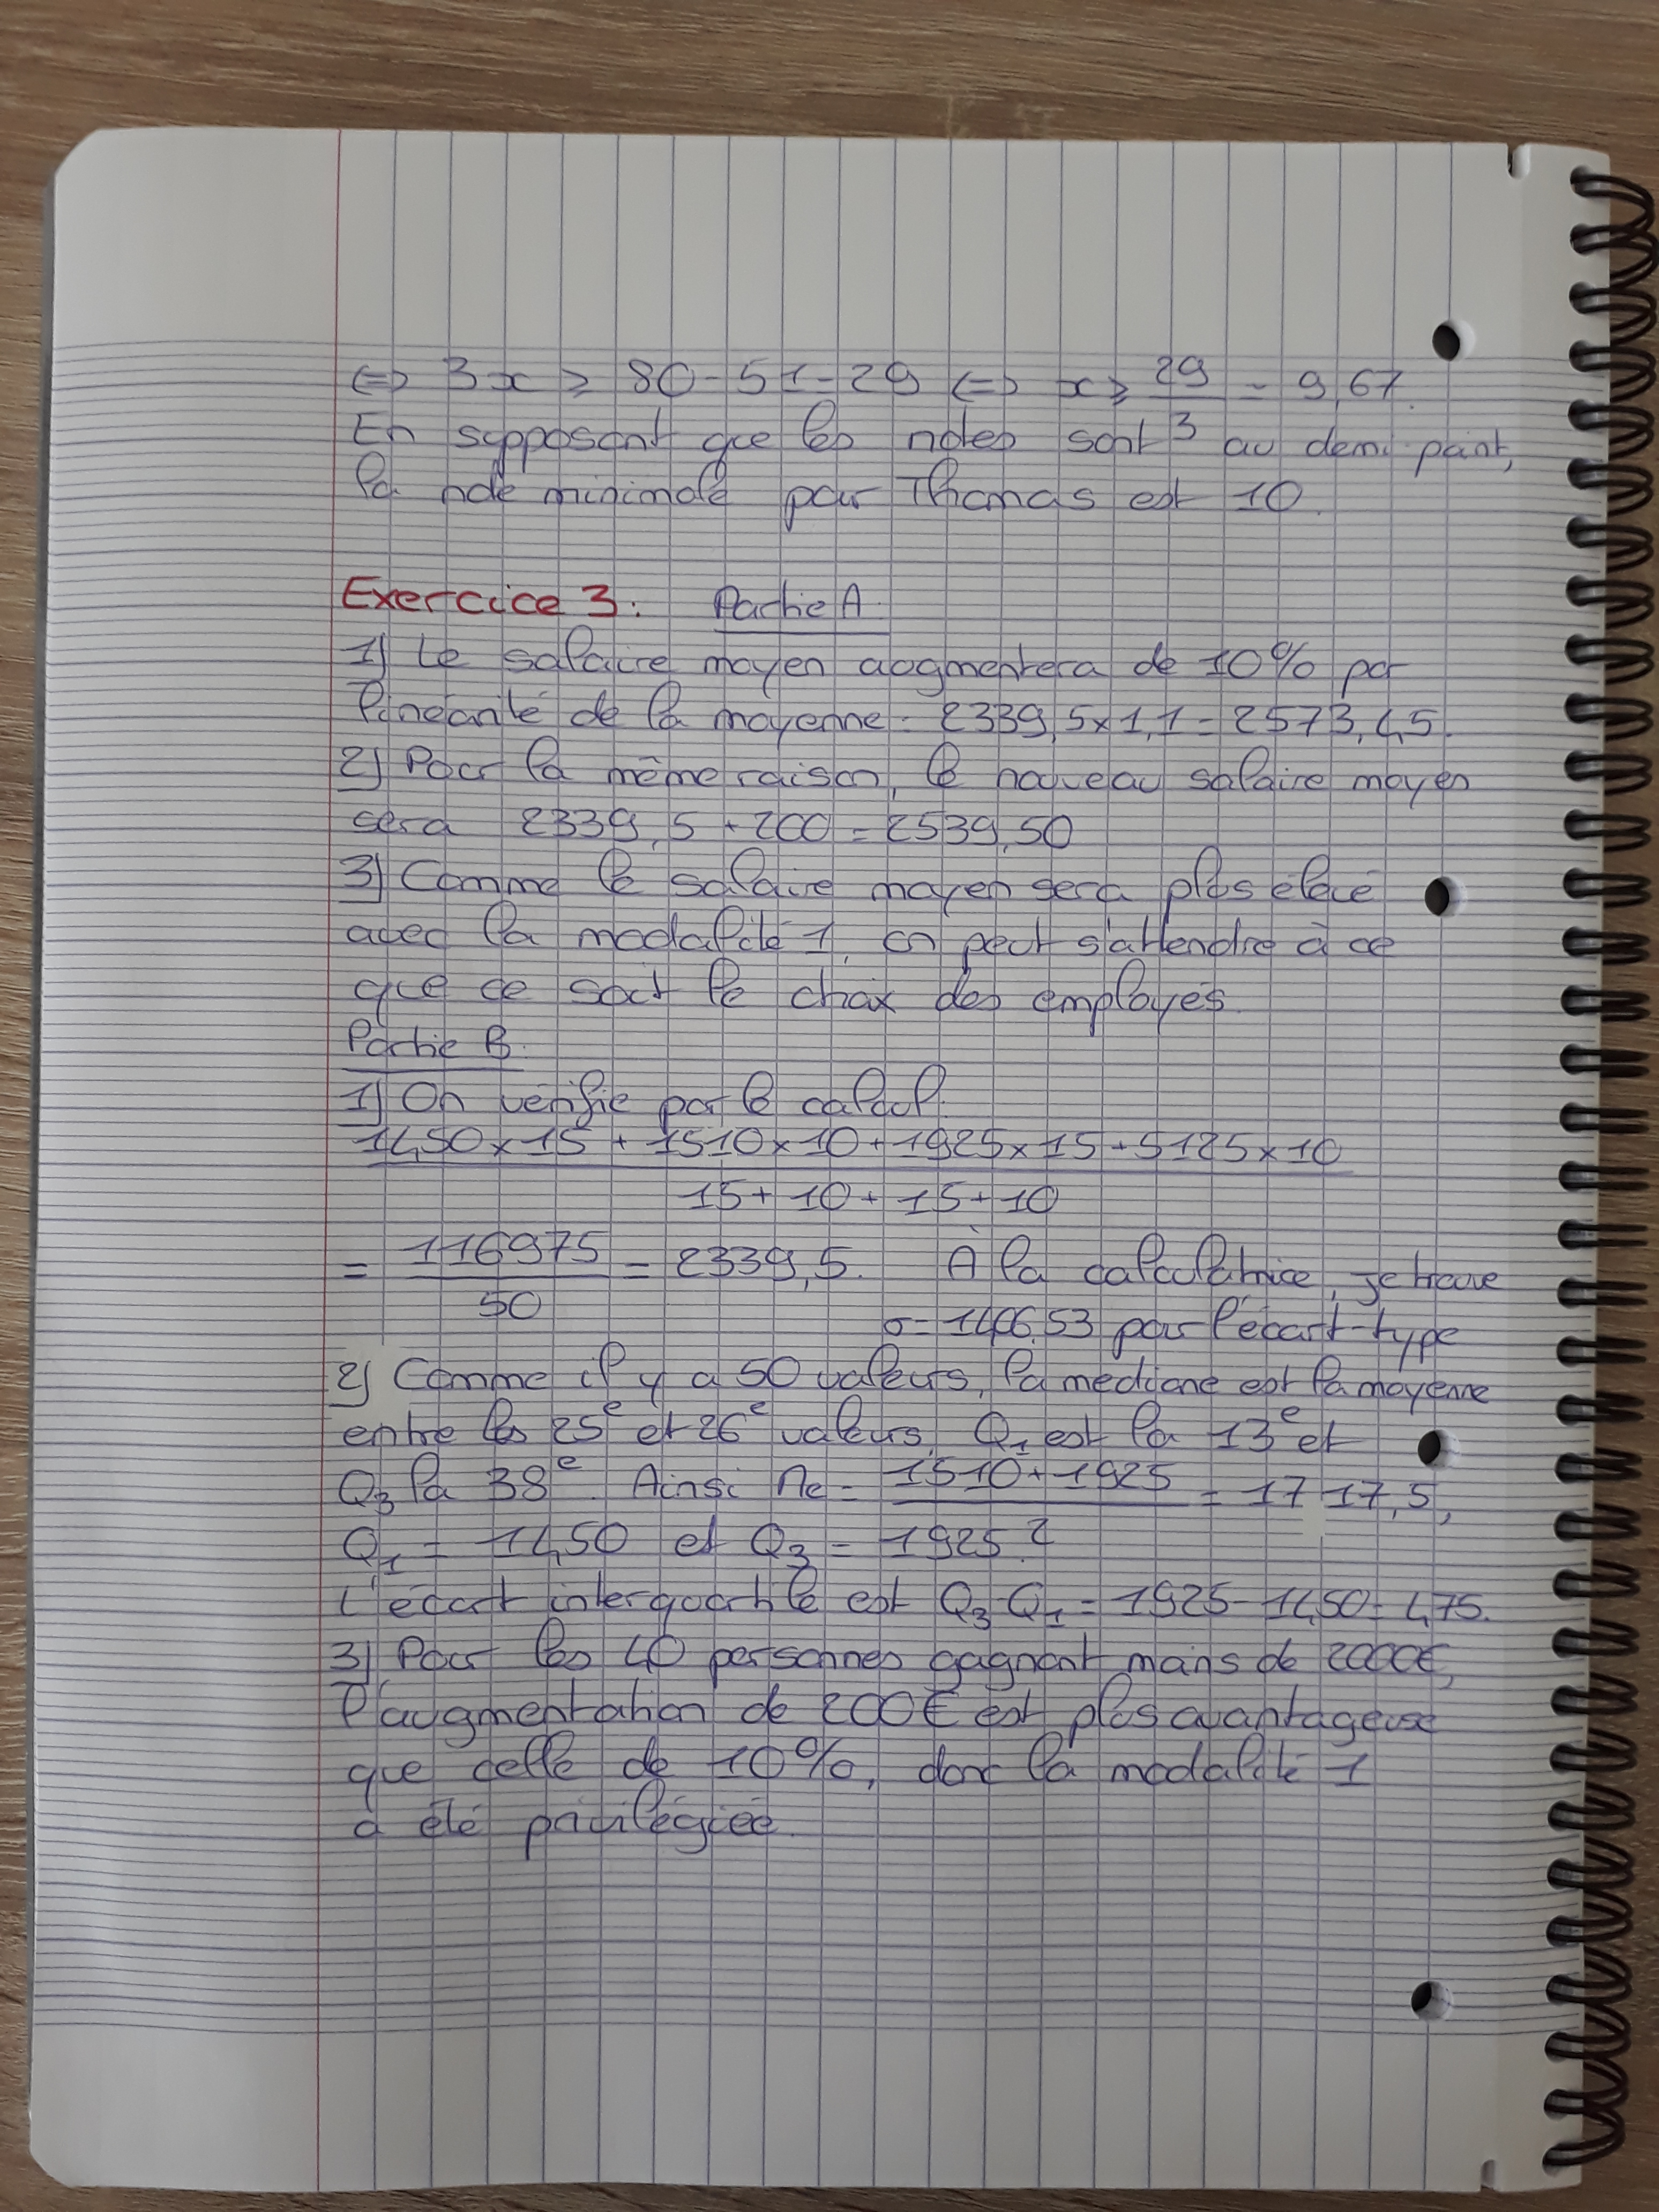 <=> 3x ≥ 80-51=29 <=> x ≥ 29/3 = 9,67.
En supposant que les notes sont au demi point,
la note minimale pour Thomas est 10.
Exercice 3: Partie A.
1) Le salaire moyen augmentera de 10% par
linéarité de la moyenne : 2339,5x1,1 = 2573,45.
2) Pour la même raison, le nouveau salaire moyen
sera 2339,5 + 200 = 2539,50
3) Comme le salaire moyen sera plus élevé
avec la modalité 1, on peut s'attendre à ce
que ce soit le choix des employés.
Partie B.
1) On vérifie par le calcul.
1450x15 + 1510x10 + 1925x15 + 5125x10
15 + 10 + 15 + 10
= 116975/50 = 2339,5. À la calculatrice, je trouve
σ = 1406,53 pour l'écart-type
2) Comme il y a 50 valeurs, la mediane est la moyenne
entre les 25e et 26e valeurs, Q1 est la 13e et
Q3 la 38e. Ainsi Me = (1510+1925)/2 = 1717,5,
Q1 = 1450 et Q3 = 1925.
L'écart interquartile est Q3-Q1 = 1925-1450 = 475.
3) Pour les 40 personnes gagnant moins de 2000€,
l'augmentation de 200€ est plus avantageuse
que celle de 10%, donc la modalité 1
a été privilégiée.